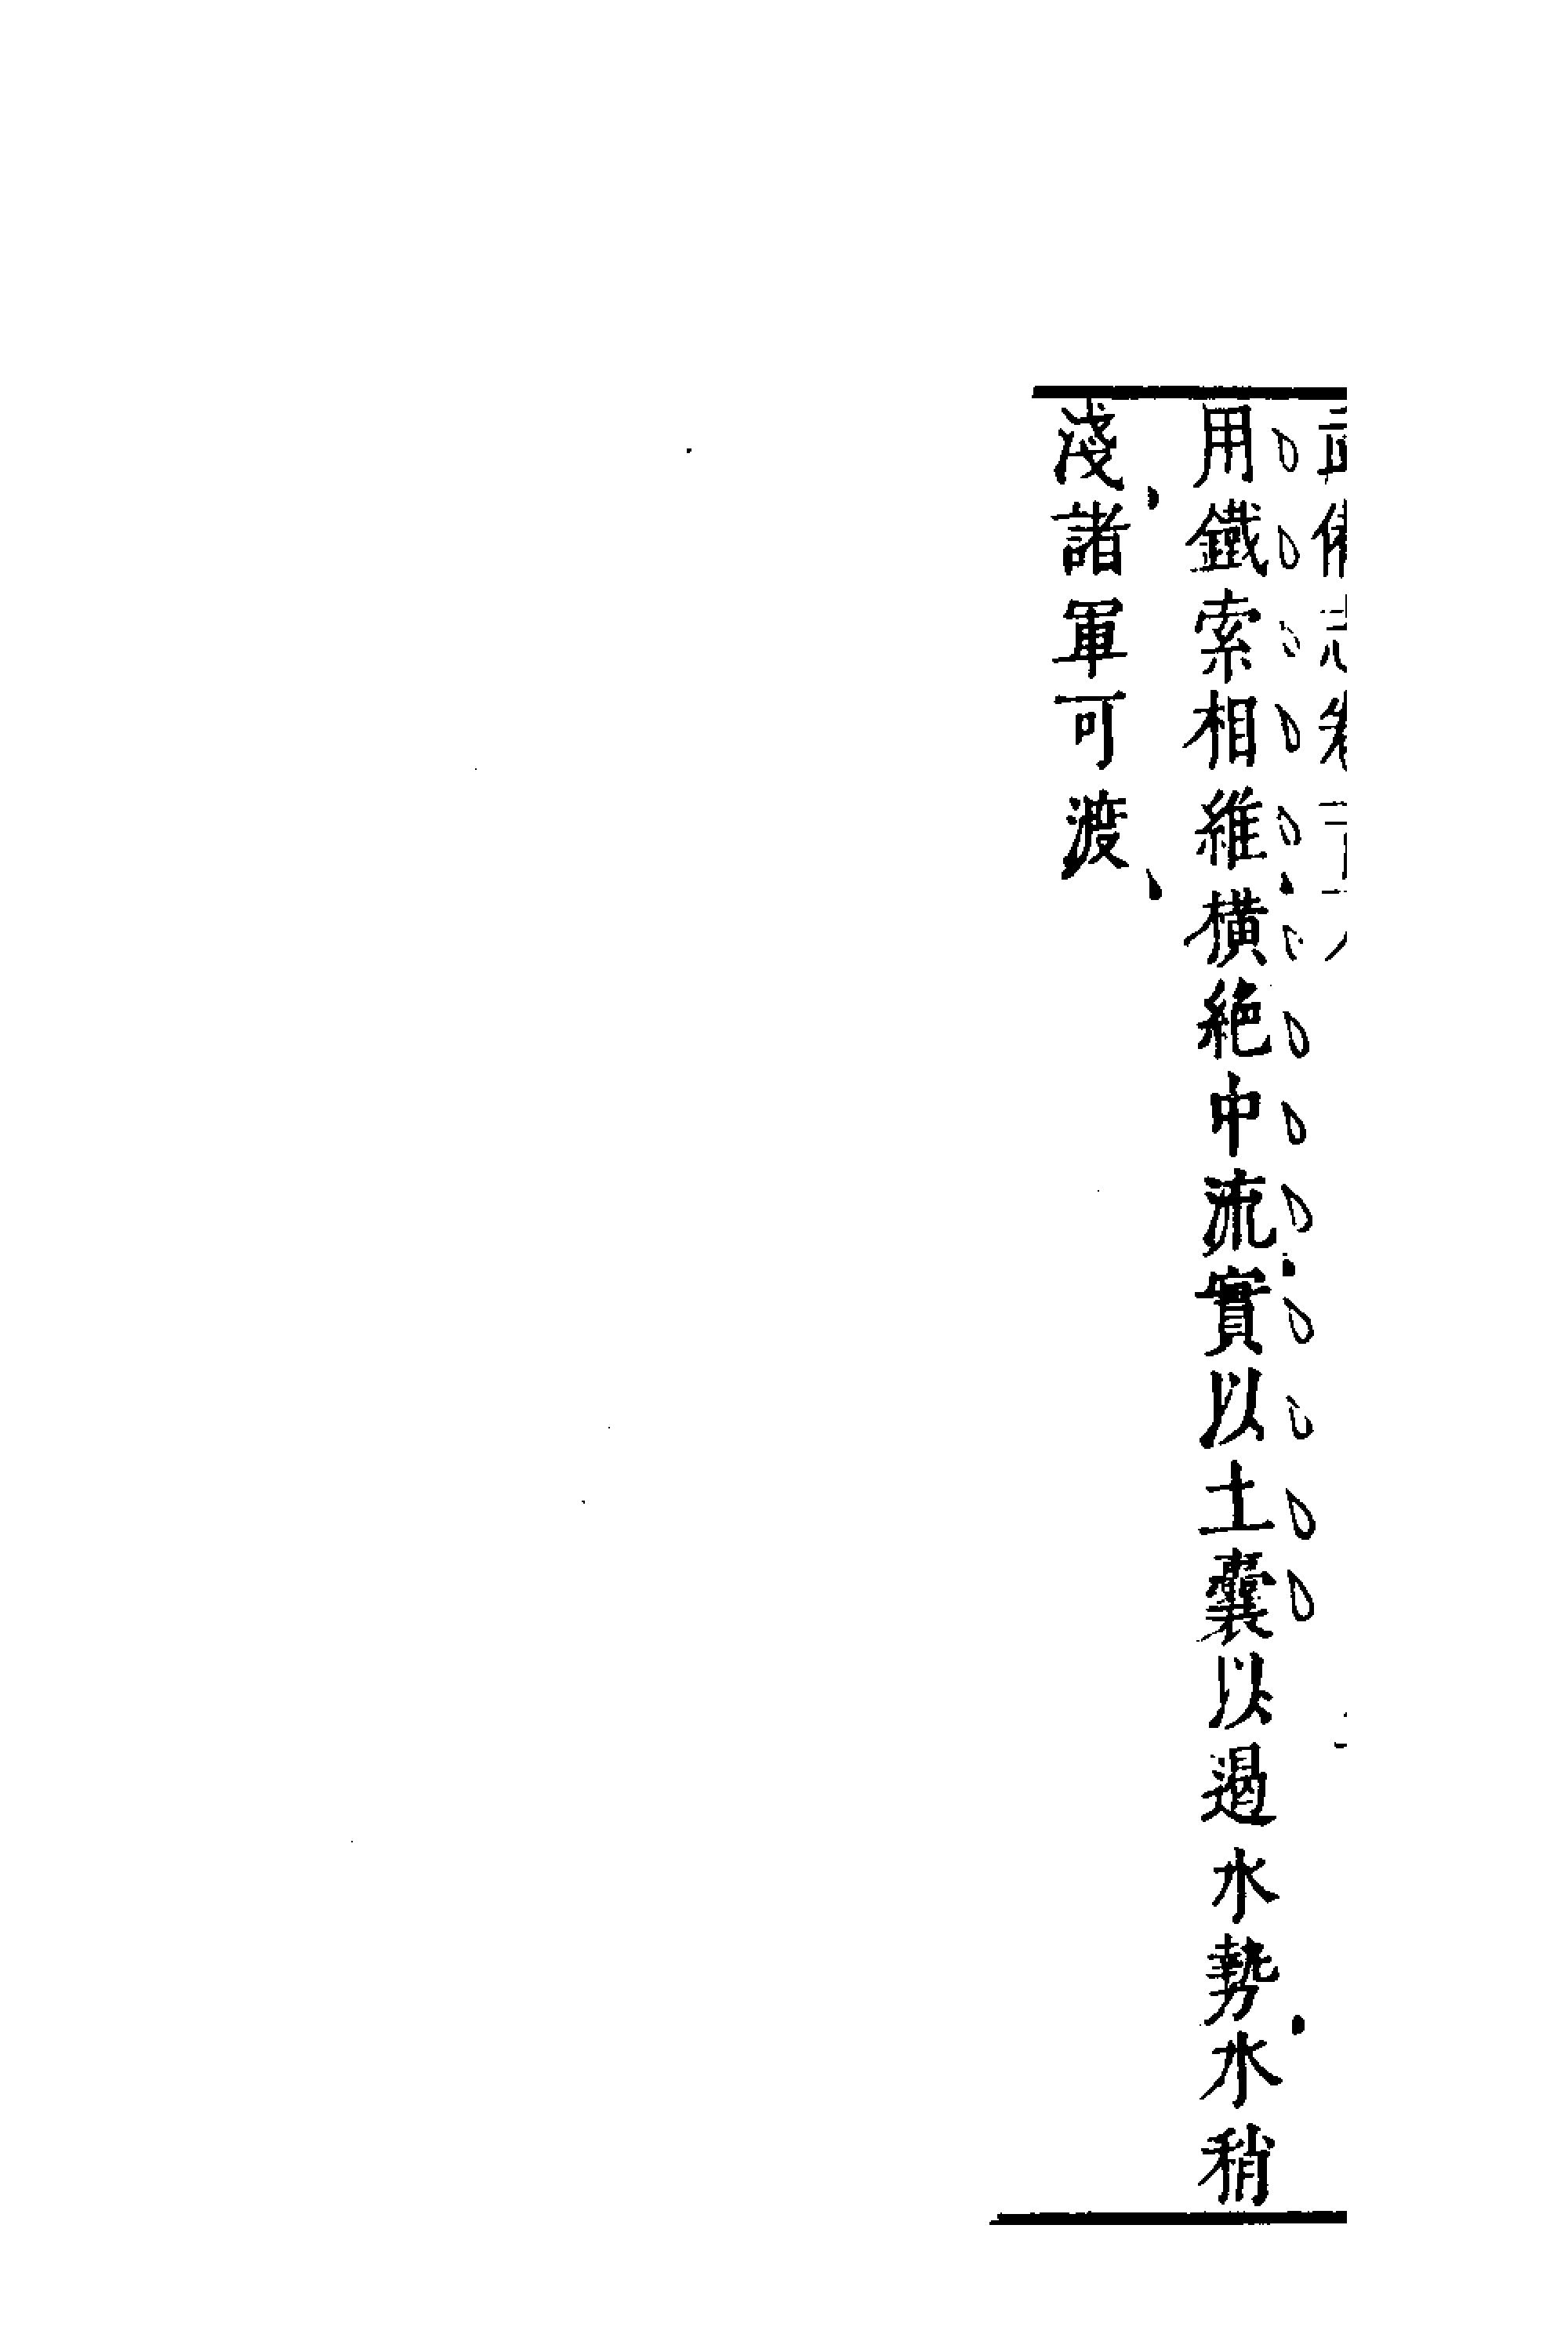 武備志卷
用鐵索相維橫絶中流實以土囊以遏水勢水稍
淺諸軍可渡